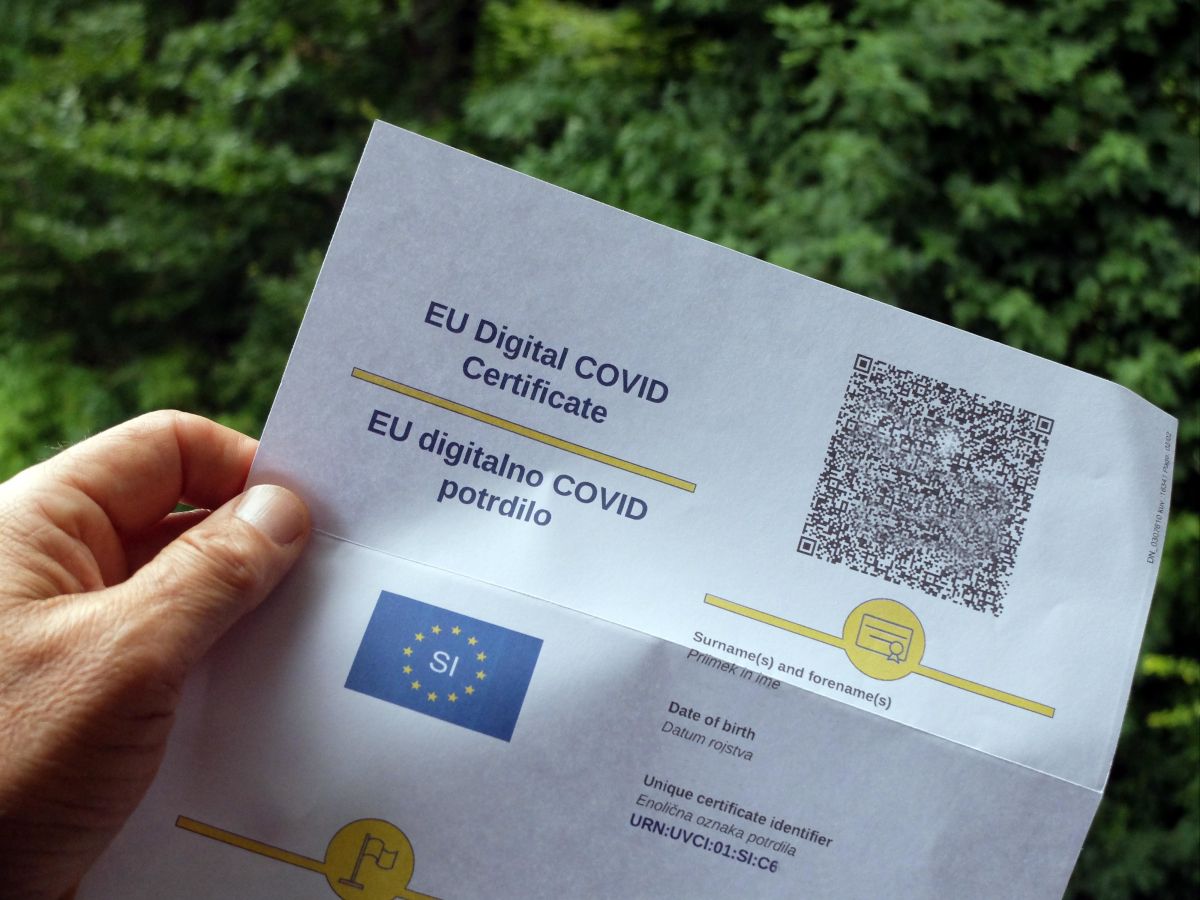 EU Digital COVID
Certificate
EU digitalno COVID
potrdilo
SI
Surname(s) and forename(s)
Priimek in ime
Date of birth
Datum rojstva
Unique certificate identifier
Enolična oznaka potrdila
URN:UVCI:01:SI:C6